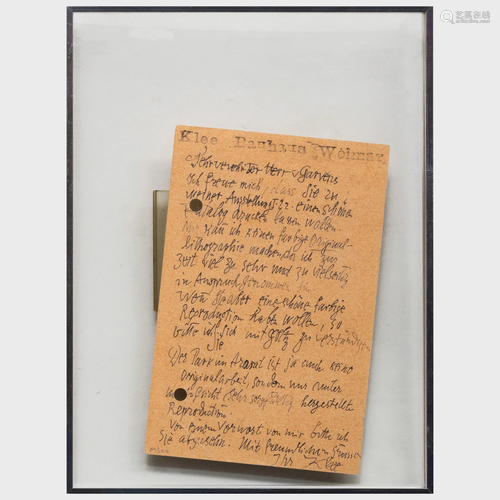 艺狐在线
Klee Bauhaus Weimar
Sehr verehrter Herr v Garvens
Ich freue mich, dass Sie zu
meiner Ausstellung einen schönen
Katalog drucken lassen wollen
ich keinen farbige Original-
lithographie machen da ich zur
Zeit viel zu sehr und zu vielseitig
in Anspruch genommen bin
Wenn Sie aber eine schöne farbige
Reproduction haben wollen, so
bitte ich sich mit Goltz zu verständigen
Sie
Der Park in ist ja auch keine
Originalarbeit, sondern nur unter
sehr sorgfältig hergestellte
Reproduction.
Von einem Vorwort von mir bitte ich
Sie abzusehn. Mit freundlichen Grüssen
Ihr Klee